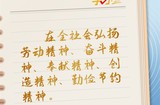 在全社会弘扬
劳动精神、奋斗精
神、奉献精神、创
造精神、勤俭节约
精神。